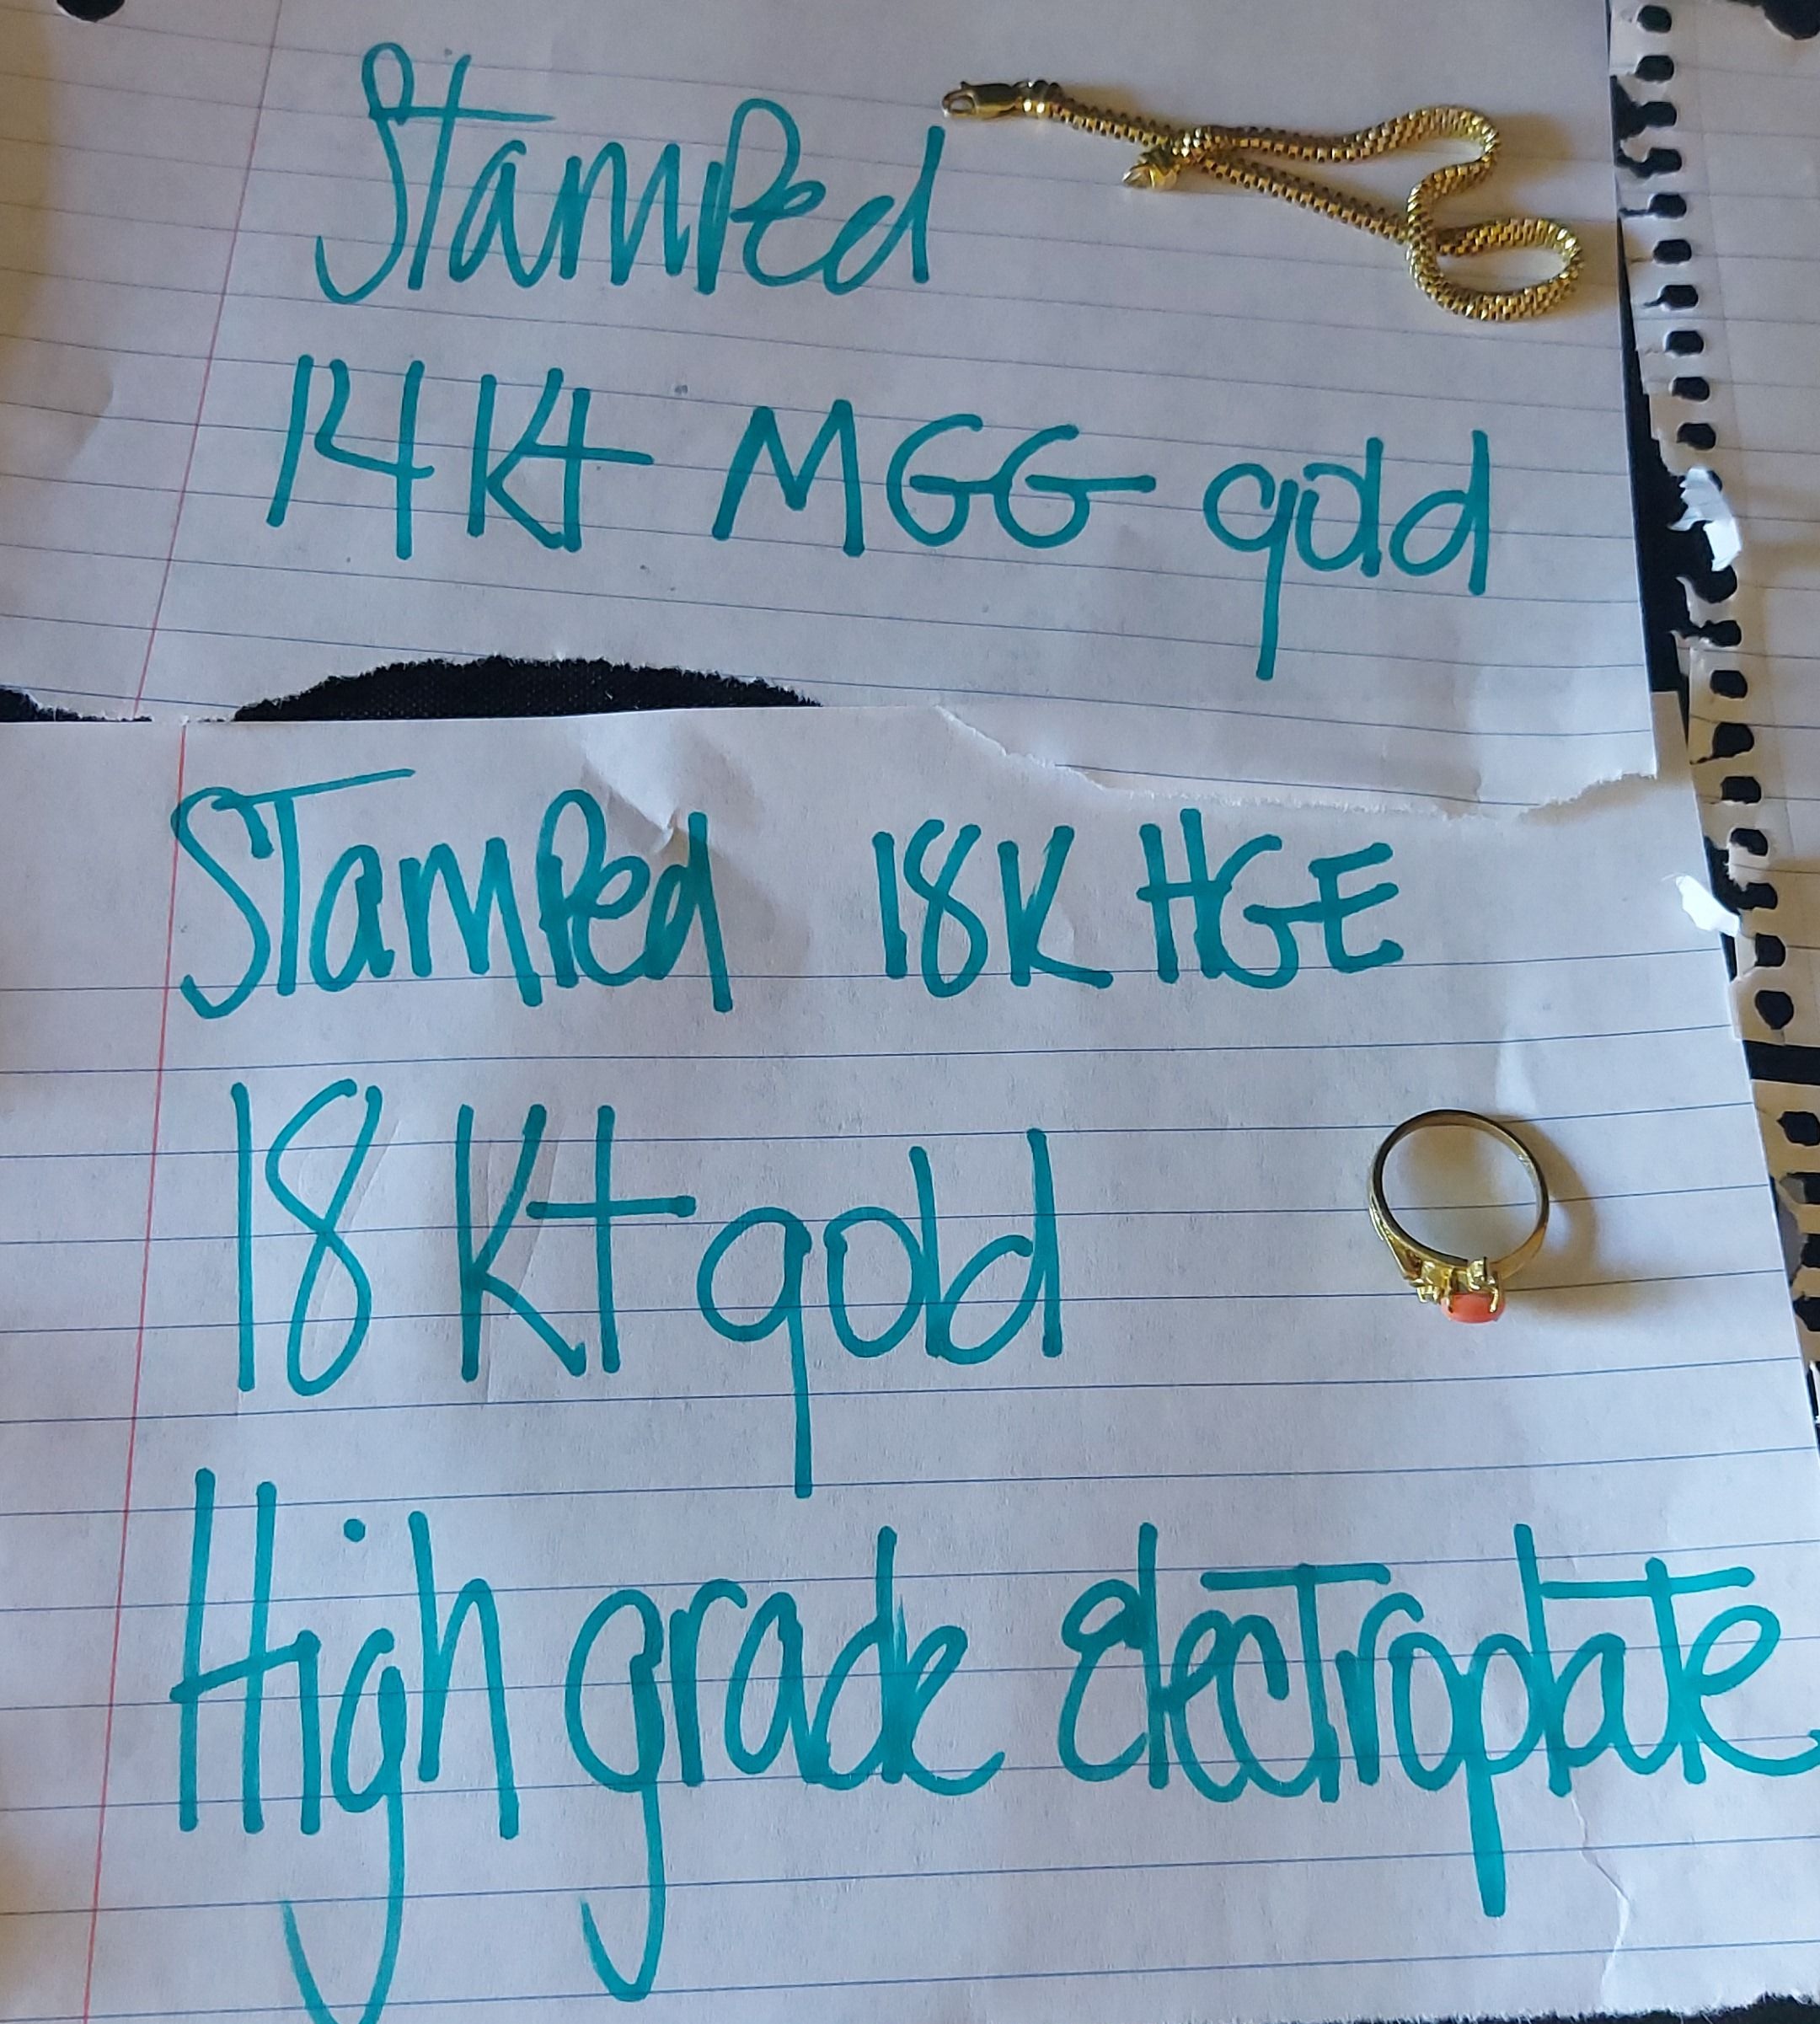 Stamped
14Kt MGG gold
Stamped 18K HGE
18 Kt gold
High grade electroplate